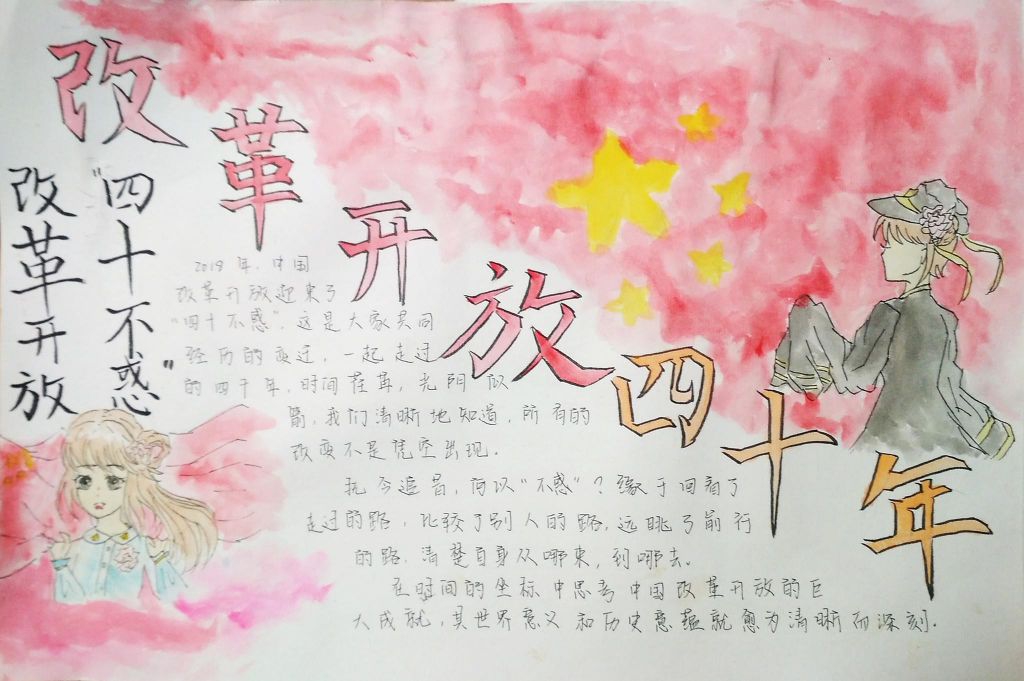 改革开放四十年
"四十不惑"
改革开放
2018年,中国
改革开放迎来了
"四十不惑",这是大家共同
经历的变迁,一起走过
的四十年,时间荏苒,光阴似
箭,我们清晰地知道,所有的
改变不是凭空出现.
抚今追昔,何以"不惑"?缘于回看了
走过的路,比较了别人的路,远眺了前行
的路.清楚自身从哪来,到哪去。
在时间的坐标中思考中国改革开放的巨
大成就,其世界意义和历史意蕴就愈为清晰而深刻.